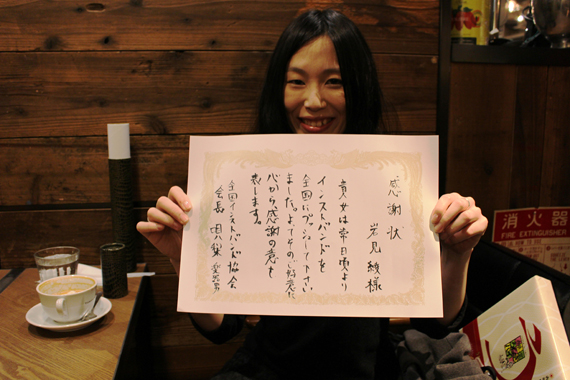 感謝状
岩見 綾様
貴女は常日頃より
インストバンドを
全国にプッシュして下さい
ました。よってその好意に
心から感謝の意を
表します。
全国インストバンド協会
会長
消火器
FIRE EXTINGUISHER